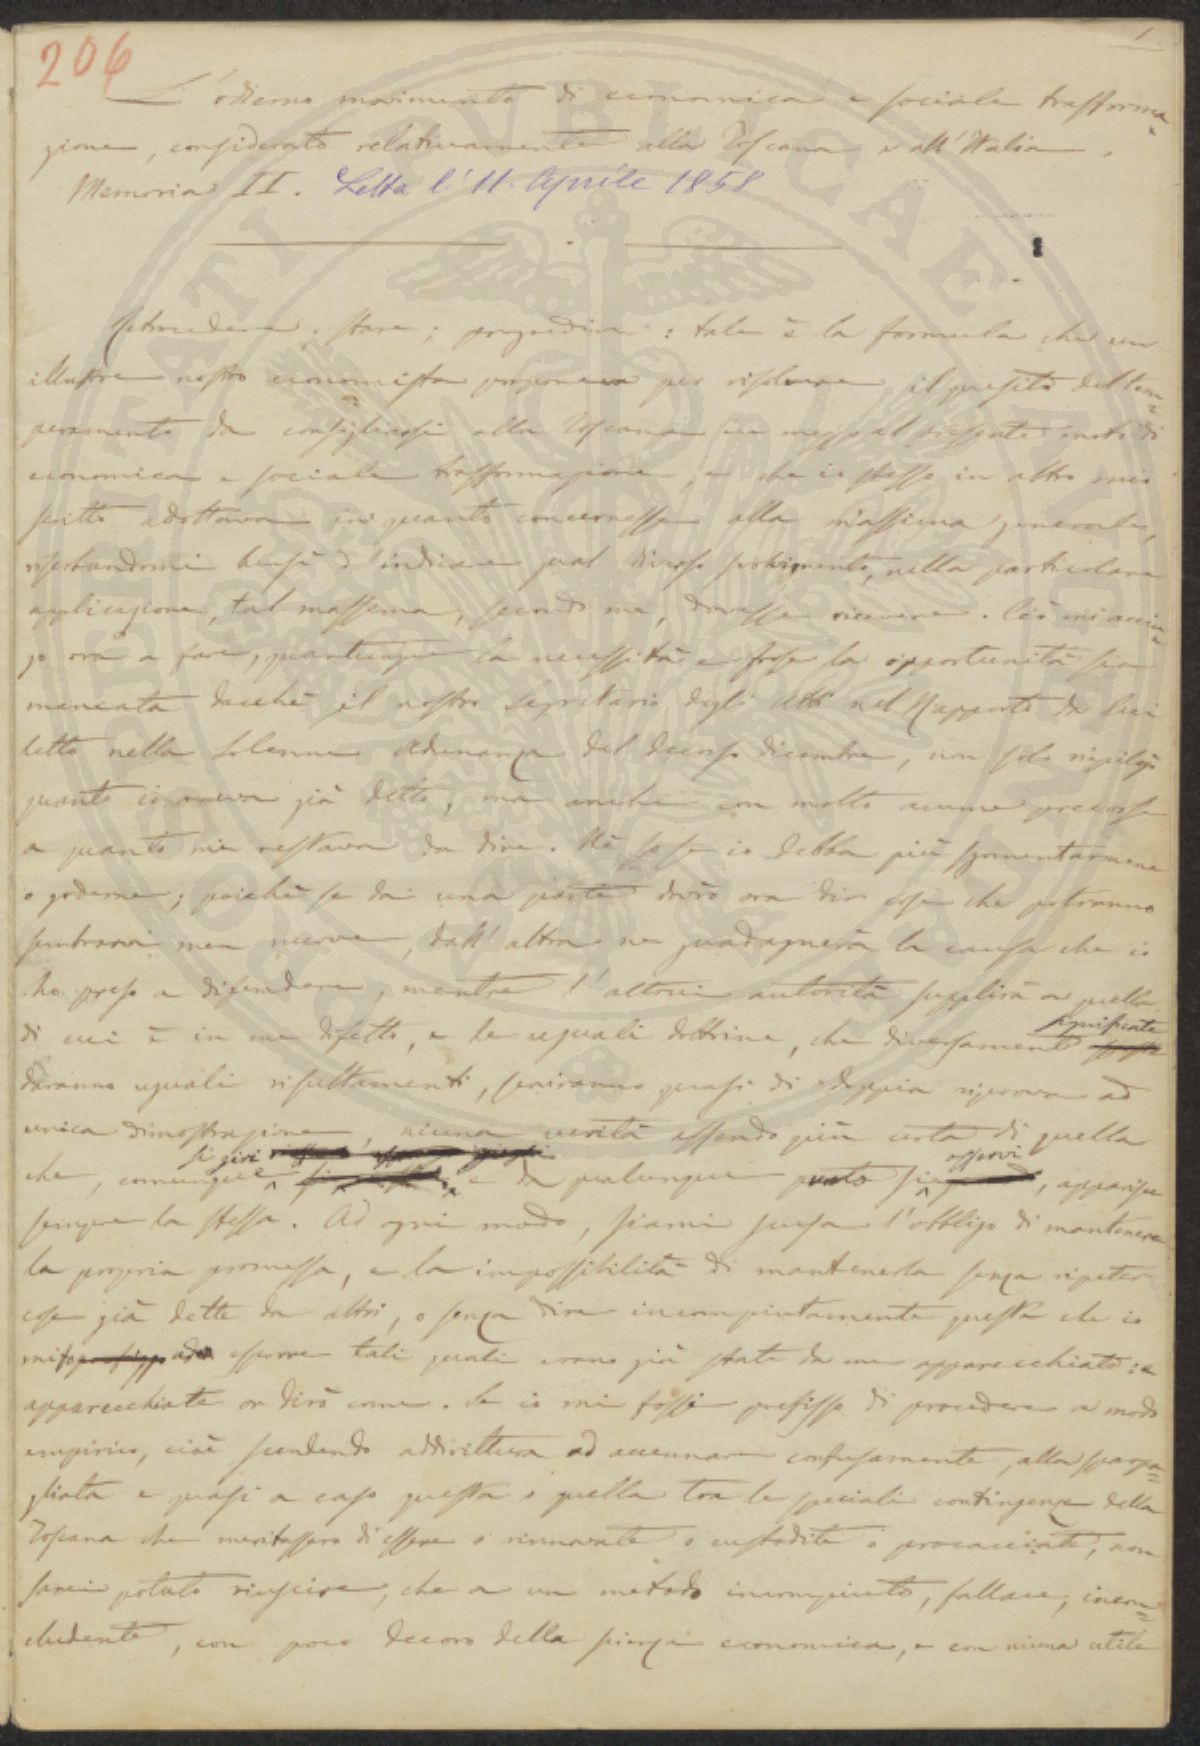 206
1.
L'odierno movimento di economica e sociale trasforma=
zione, considerato relativamente alla Toscana e all'Italia.
Memoria II. Letta l'11. Aprile 1858
Retrocedere; stare; progredire: tale è la formula che un
illustre nostro economista proponeva per risolvere il quesito del tem=
peramento da consigliarsi alla Toscana in mezzo al presente moto di
economica e sociale trasformazione, e che io stesso in altro mio
scritto adottava in quanto concernesse alla massima generale,
riserbandomi bensì d'indicare qual diverso svolgimento, nella particolare
applicazione, tal massima, secondo me, dovesse ricevere. Ciò mi accin=
go ora a fare, quantunque la necessità e forse la opportunità sia
mancata dacchè il nostro Segretario degli Atti nel Rapporto da lui
letto nella Solenne Adunanza del decorso dicembre, non solo riepilogò
quanto io aveva già detto, ma anche con molto acume precorse
a quanto mi restava da dire. Nè so se io debba più sgomentarmene
o goderne; poichè se da una parte dovrò ora dir cose che potranno
sembrarvi men nuove, dall'altra ne guadagnerà la causa che io
ho preso a difendere, mentre l'altrui autorità supplirà a quella
di cui è in me difetto, e le uguali dottrine, che diversamente significate
daranno uguali risultamenti, serviranno quasi di doppia riprova ad
unica dimostrazione, niuna verità essendo più certa di quella
che, comunque si giri e da qualunque punto si osservi, apparisce
sempre la stessa. Ad ogni modo, siami scusa l'obbligo di mantenere
la propria promessa, e la impossibilità di mantenerla senza ripeter
cose già dette da altri, o senza dire incompiutamente queste che io
mi fo ad esporre tali quali erano già state da me apparecchiate: e
apparecchiate or dirò come. Se io mi fossi prefisso di procedere a modo
empirico, cioè scendendo addirittura ad accennare confusamente, alla sparpa=
gliata e quasi a caso questa o quella tra le speciali contingenze della
Toscana che meritassero di essere o rinnovate o custodite o procacciate, non
sarei potuto riuscire, che a un metodo incompiuto, fallace, incon=
cludente, con poco decoro della scienza economica, e con niuna utile